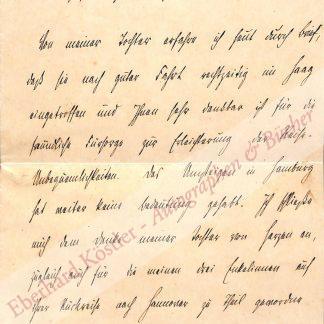 Von meiner Tochter erfahre ich heut durch Brief,
daß sie nach guter Fahrt rechtzeitig im Haag
eingetroffen und Ihnen sehr dankbar ist für die
freundliche Fürsorge zur Erleichterung der Reise-
Unbequemlichkeiten. Das Umsteigen in Hamburg
hat weiter keine Bedeutung gehabt. Ich schließe
mich dem Danke meiner Tochter von Herzen an,
zugleich auch für die meinen drei Enkelinnen auf
ihrer Rückreise nach Hannover zu Theil gewordene
Eberhard Köstler - Autographen & Bücher